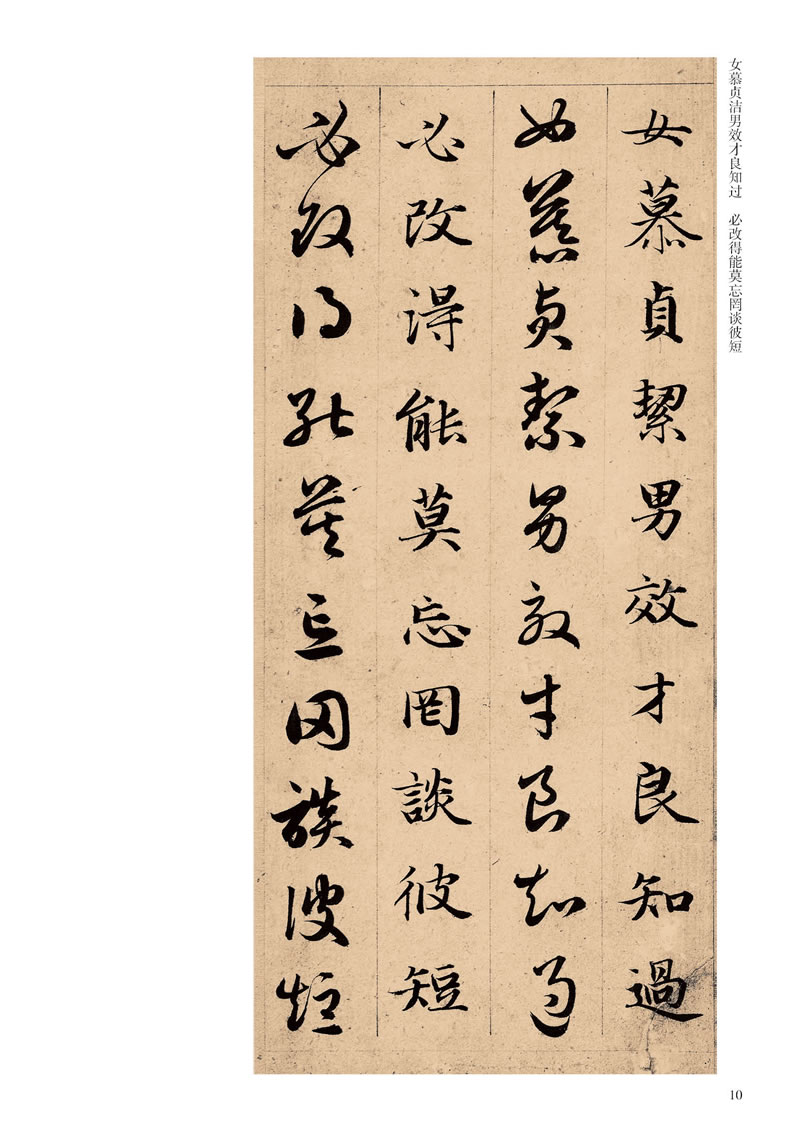 女慕贞洁男效才良知过　必改得能莫忘罔谈彼短
女慕貞絜男效才良知過
女慕貞絜男效才良知過
必改得能莫忘罔談彼短
必改得能莫忘罔談彼短
10